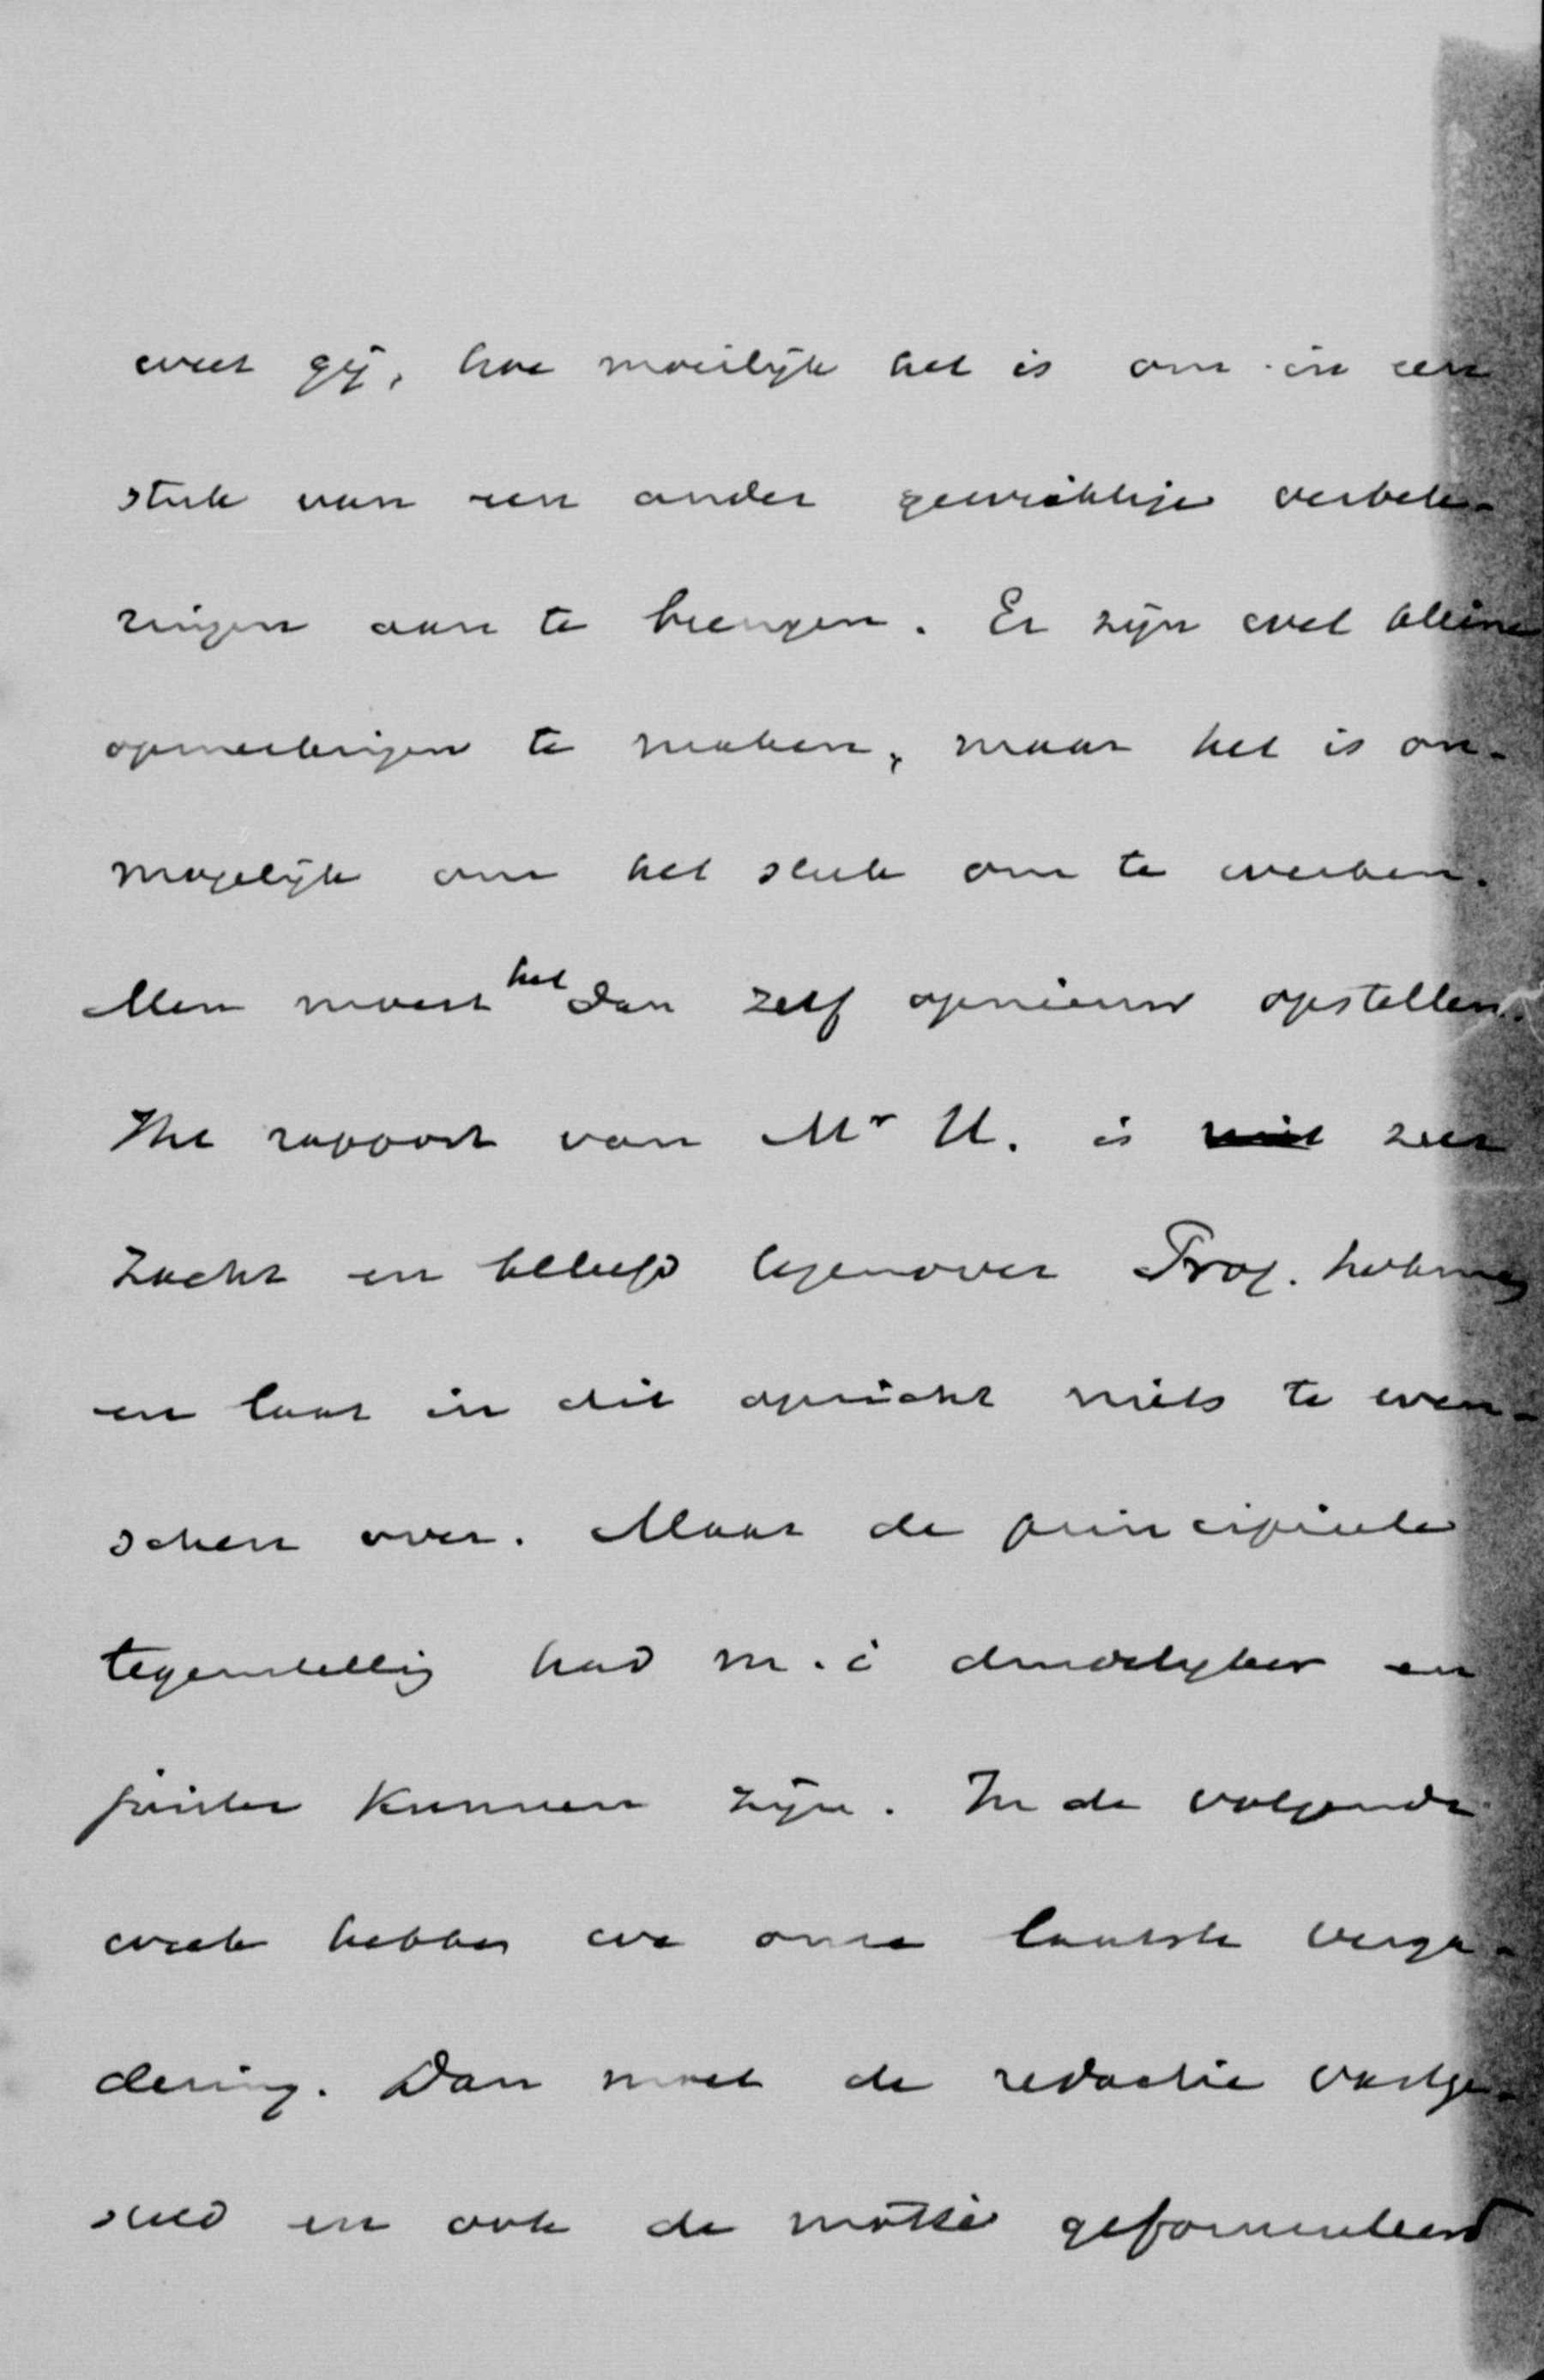 weet gij, hoe moeilijk het is om in een
stuk van een ander gewichtige verbete-
ringen aan te brengen. Er zijn wel kleine
opmerkingen te maken, maar het is on-
mogelijk om het stuk om te werken.
Men moest het dan zelf opnieuw opstellen.
Het rapport van Mr H. is niet zeer
zacht en beleefd tegenover Prof.
en laat in dit opzicht niets te wen-
schen over. Maar de principieele
tegenstelling had m.i duidelijker en
juister kunnen zijn. In de volgende
week hebben we onze laatste verga-
dering. Dan moet de redactie vastge-
steld en ook de motie geformuleerd